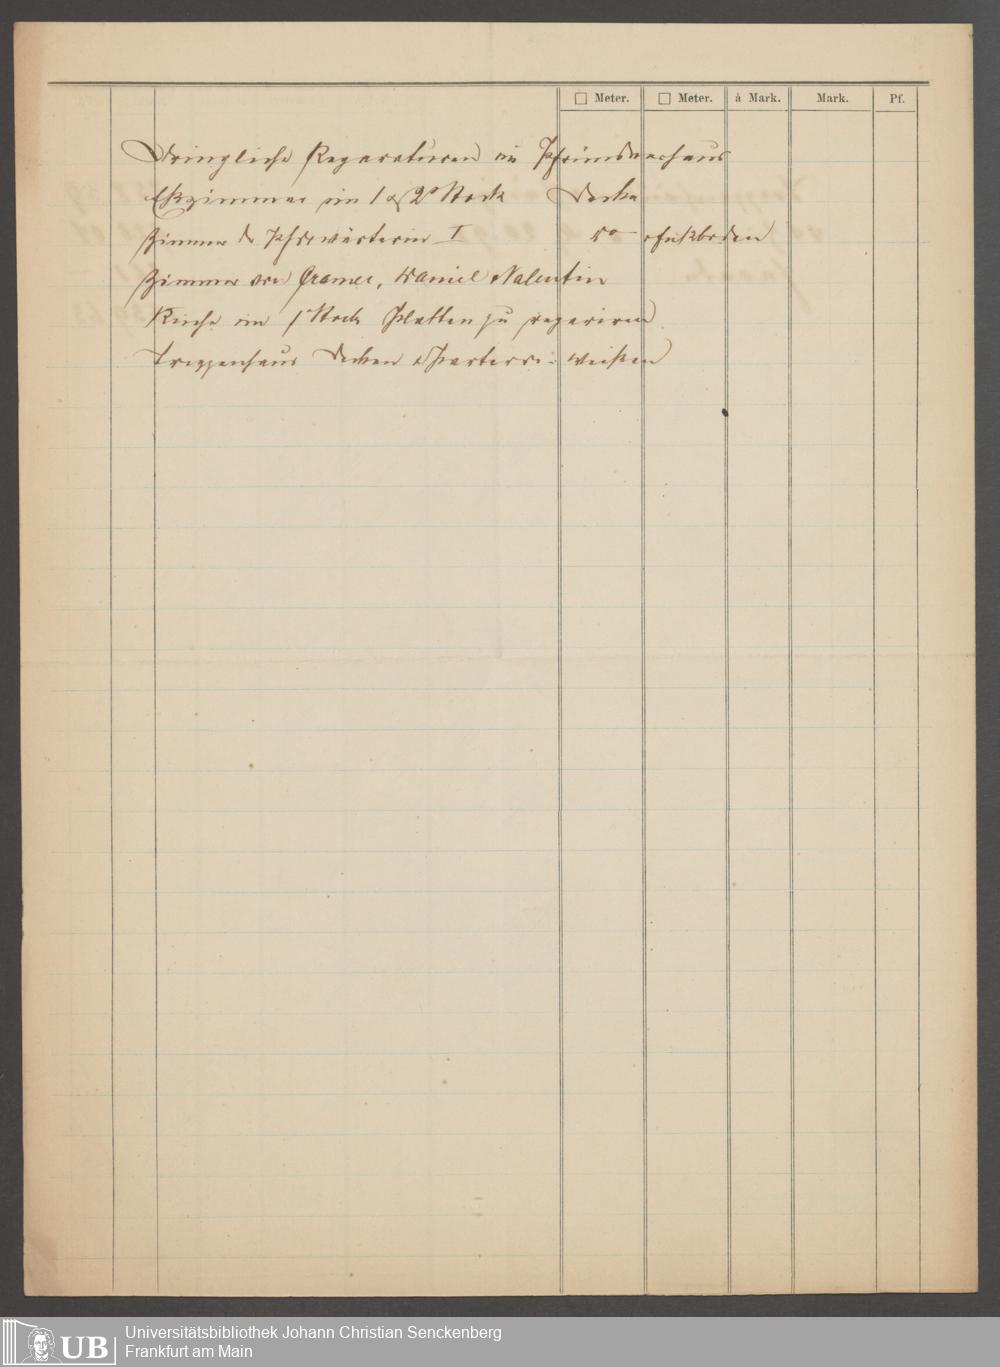 □ Meter. □ Meter. à Mark. Mark. Pf.
Dringliche Reparaturen im Pfründnerhaus
Eßzimmer im 1 & 2 Stock Decke
Zimmer der wärterin I do Fußboden
Zimmer von Cramer, Daniel Valentin
Küche im 1 Stock Platten zu repariren
Treppenhaus Decken Parterre weißen
UB
Universitätsbibliothek Johann Christian Senckenberg
Frankfurt am Main